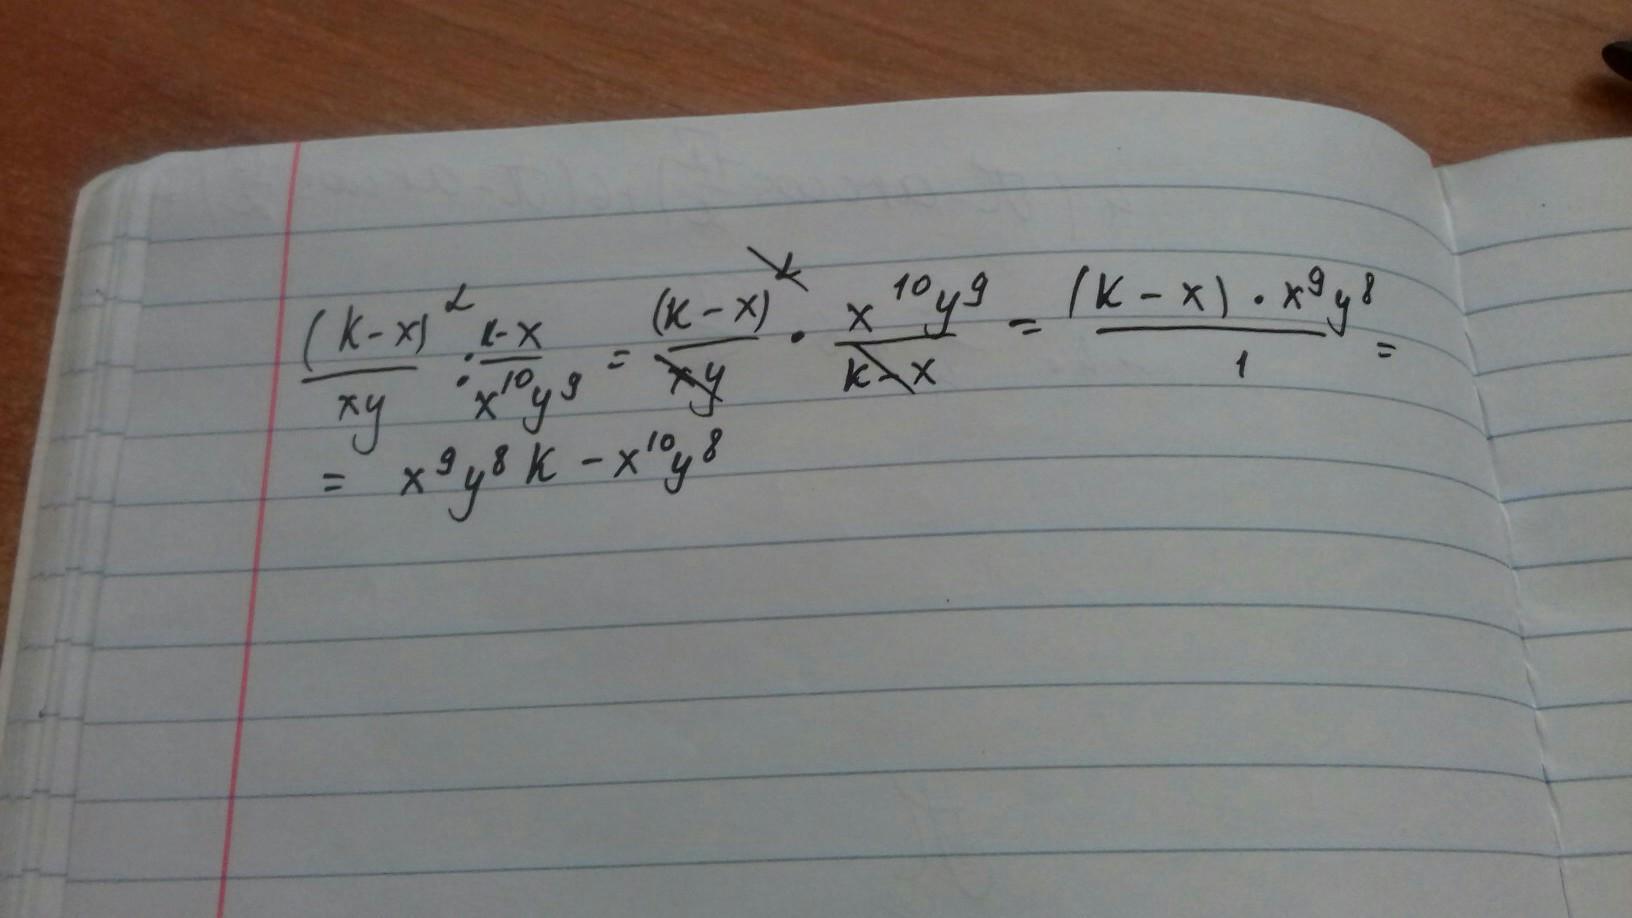 (k-x)²/xy : k-x/x¹⁰y⁹ = (k-x)²/xy · x¹⁰y⁹/k-x = (k-x)·x⁹y⁸/1 =
= x⁹y⁸k - x¹⁰y⁸